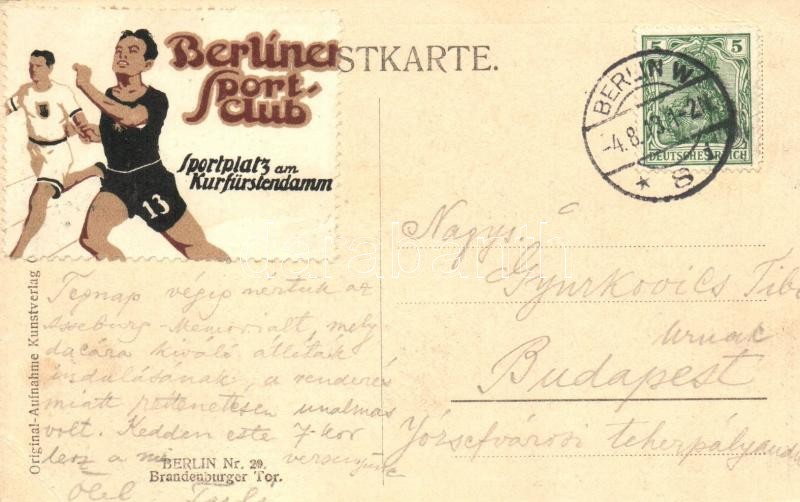 Berliner
Sport-
Club
Sportplatz am
Kurfürstendamm
13
STKARTE.
5 5
BERLIN W.
-4.8.13.1-2N.
* 8
DEUTSCHES REICH
Nagys.
Gyurkovics Tibo
Urnak
Budapest
Józsefvárosi teherpályaudv
Original-Aufnahme Kunstverlag
Tegnap végig néztük az
Asseburg-Memoriált, mely
dacára kiváló atléták
indulásának, a rendezés
miatt rettenetesen unalmas
volt. Kedden este 7-kor
lesz a mi versenyünk
Ölel
BERLIN Nr. 29.
Brandenburger Tor.